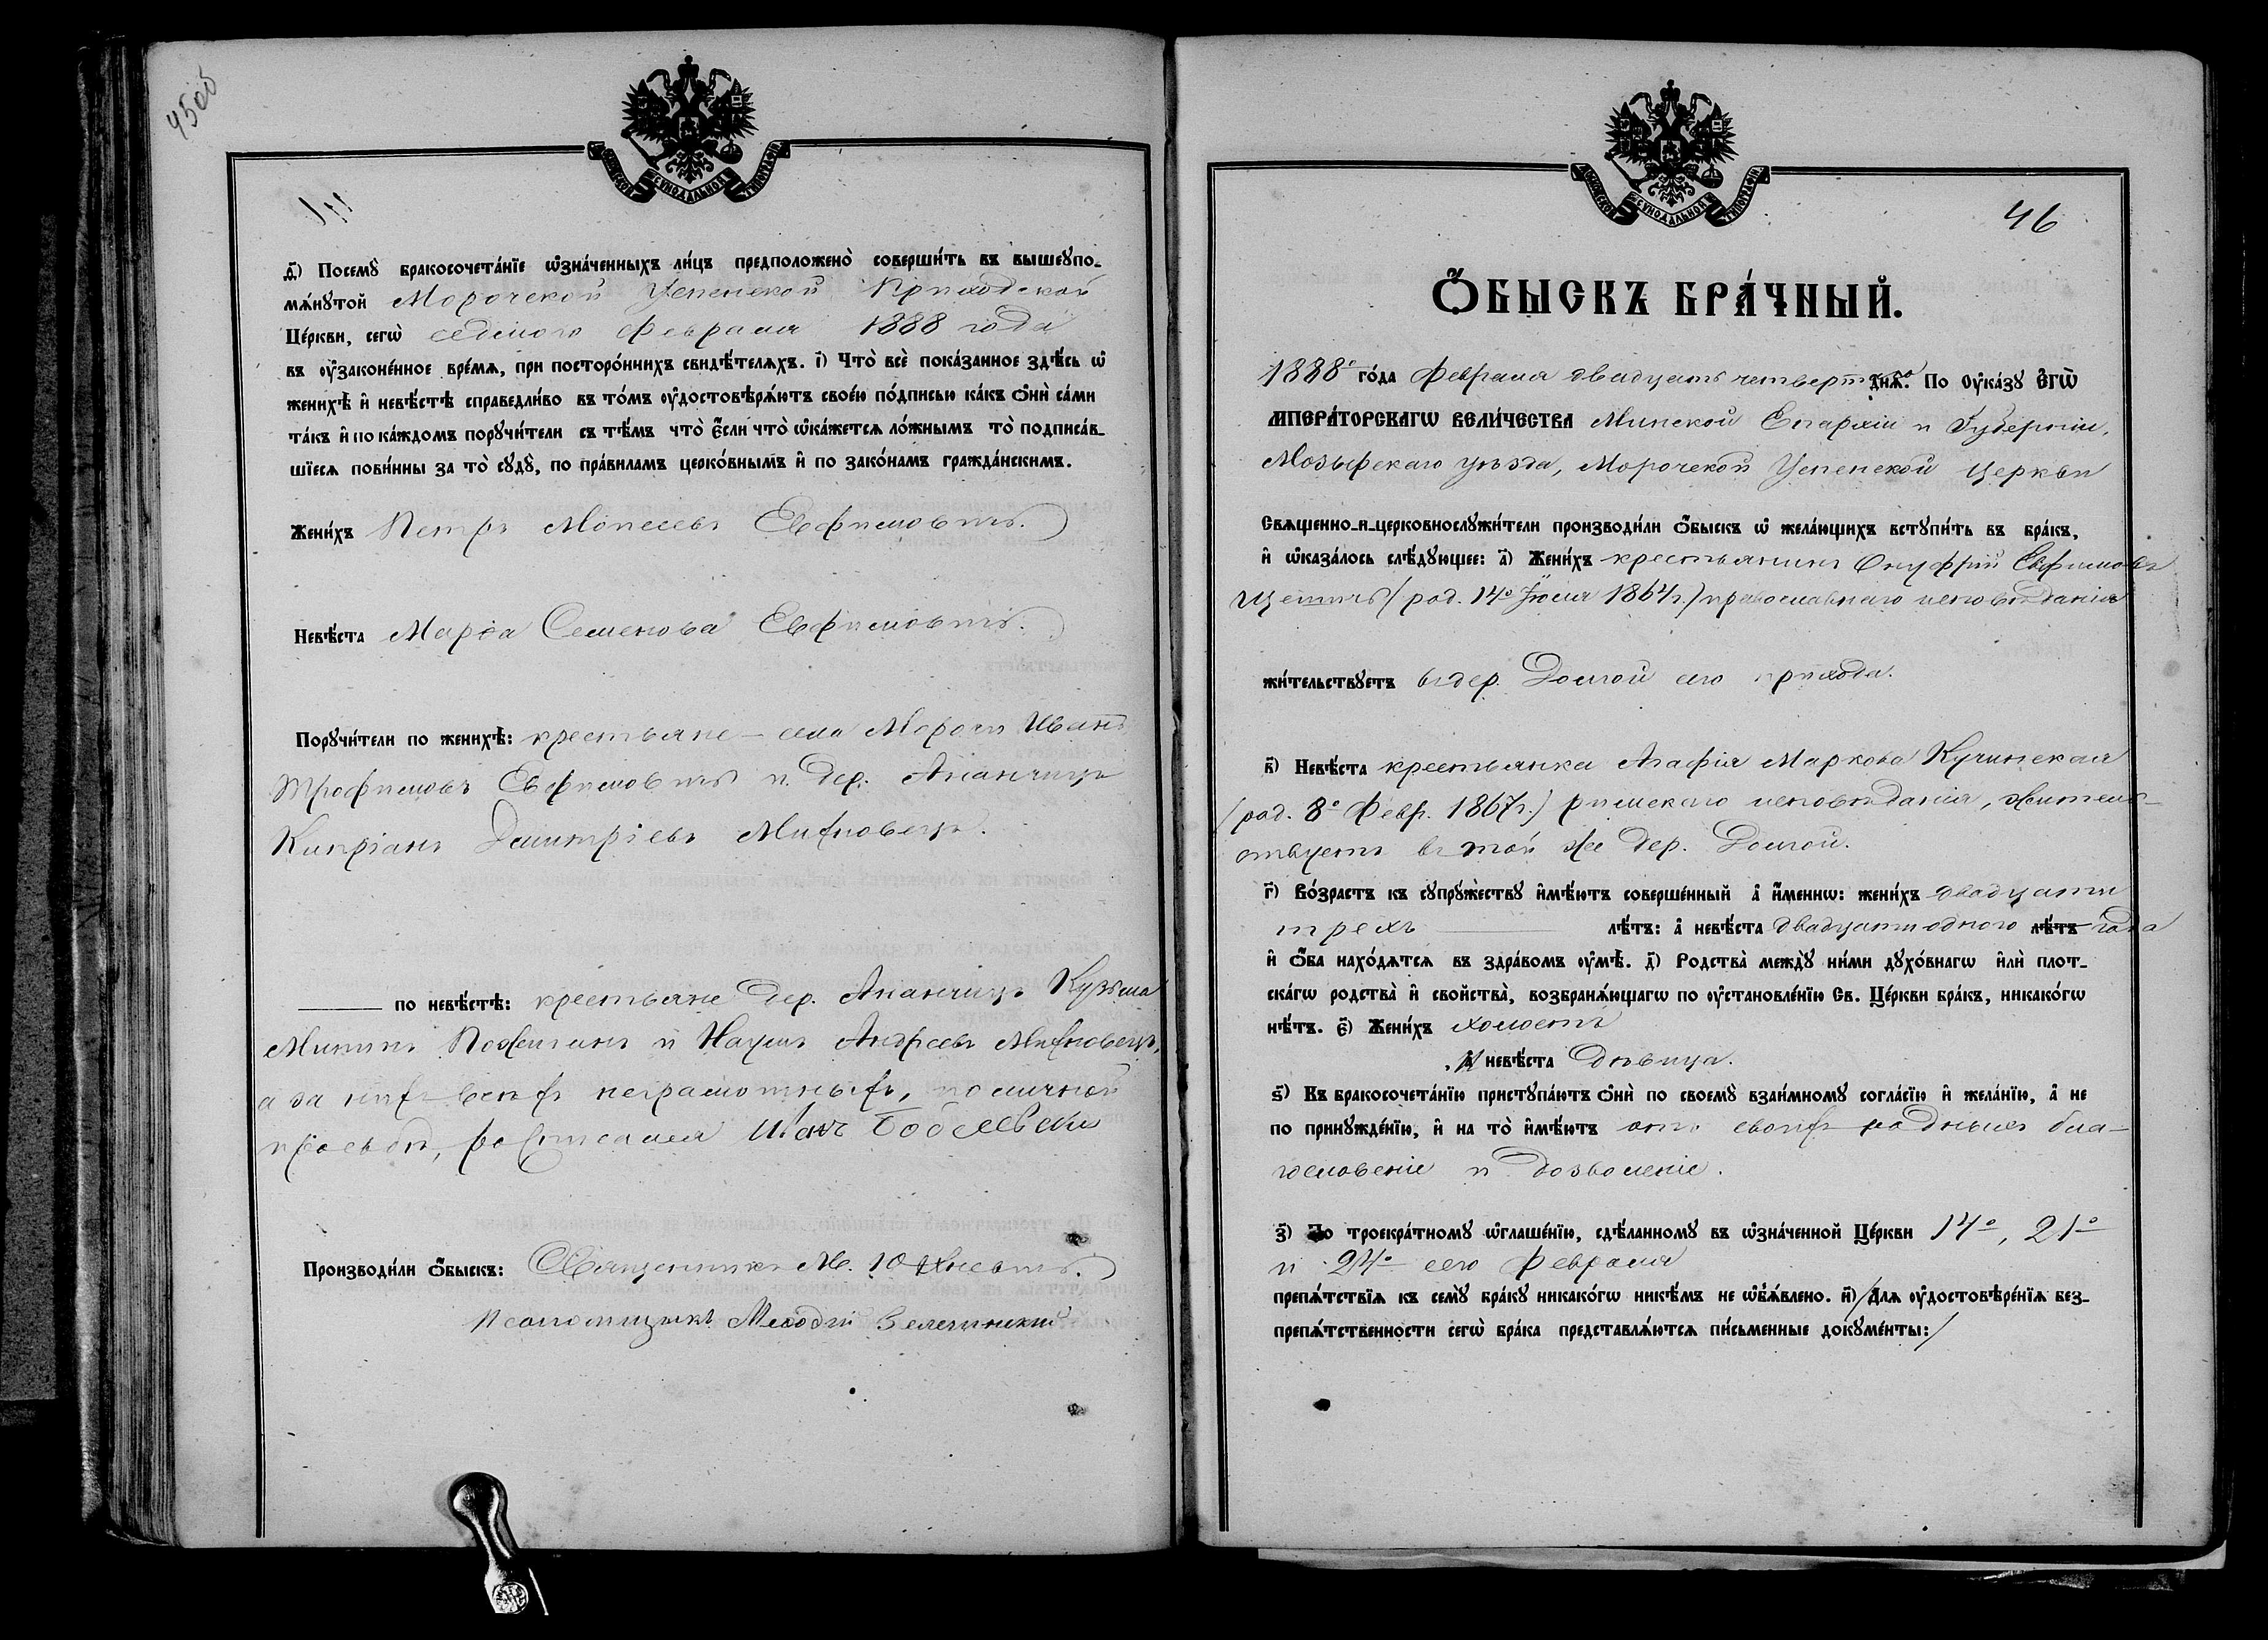 45об
КІЕВСКОЙ СѴНОДАЛЬНОЙ ТИПОГРАФІИ
ѳ҃) Посемꙋ̀ бракосочета́нїе ѡ҆зна́ченныхъ ли́цъ предположено̀ соверши́ть въ вышеꙋпо-
мѧ́нꙋтой Морочской Успенской Приходской
Це́ркви, сегѡ̀ седьмого Февраля 1888 года
въ оу҆законе́нное вре́мѧ, при посторо́ннихъ свидѣ́телѧхъ. і҃) Что̀ всѐ пока́занное здѣ́сь ѡ҆
женихѣ̀ и҆ невѣ́стѣ справедли́во въ то́мъ оу҆достовѣрѧ́ютъ свое́ю по́дписью ка́къ ѻ҆нѝ са́ми
та́къ и҆ по ка́ждомъ порꙋчи́тели съ тѣ́мъ что̀ є҆́сли что̀ ѡ҆ка́жетсѧ ло́жнымъ то̀ подписа́в-
шїесѧ пови́нны за то̀ сꙋдꙋ̀, по пра́виламъ церко́внымъ и҆ по зако́намъ гражда́нскимъ.
Жени́хъ Петръ Моисеевъ Евфимовичъ.
Невѣ́ста Марѳа Семенова Евфимовичъ.
Порꙋчи́тели по женихѣ̀: крестьяне — села Морочи Иванъ
Трофимовъ Евфимовичъ и дер. Ананчицъ
Кипріанъ Димитріевъ Михновецъ.
по невѣ́стѣ: крестьяне дер. Ананчицъ Кузьма
Мининъ и Наумъ Андреевъ Михновецъ,
а за нихъ всѣхъ неграмотныхъ, по личной
просьбѣ, росписался Иванъ
Производи́ли ѻ҆́быскъ: Священникъ М. Юхневичъ.
Псаломщикъ Меѳодій
КІЕВСКОЙ СѴНОДАЛЬНОЙ ТИПОГРАФІИ
46
Ѻ҆́БЫСКЪ БРА́ЧНЫЙ.
1888го го́да Февраля двадцать четвертаго днѧ̀. По Оу҆ка́зꙋ Є҆гѡ̀
ИМПЕРА́ТОРСКАГѠ ВЕЛИ́ЧЕСТВА Минской Епархіи и Губерніи,
Мозырскаго уѣзда, Морочской Успенской церкви
Свѧщенно-и-церковнослꙋжи́тели производи́ли ѻ҆́быскъ ѡ҆ жела́ющихъ встꙋпи́ть въ бра́къ,
и҆ ѡ҆каза́лось слѣ́дꙋющее: а҃) Жени́хъ крестьянинъ Онуфрій Евфимовъ
(род. 14го Іюня 1864г.) православнаго исповѣданія
жи́тельствꙋетъ въ дер. Долгой сего прихода.
в҃) Невѣ́ста крестьянка Агафія Маркова Кучинская
(род. 8го Февр. 1867г.) римскаго исповѣданія, житель-
ствуетъ въ той же дер. Долгой.
г҃) Во́зрастъ къ сꙋпрꙋ́жествꙋ и҆мѣ́ютъ соверше́нный а҆ и҆́меннѡ: жени́хъ двадцати
трехъ лѣ́тъ: а҆ невѣ́ста двадцати одного лѣ́тъ года
и҆ ѻ҆́ба нахо́дѧтсѧ въ здра́вомъ оу҆мѣ̀. д҃) Родства̀ междꙋ̀ ни́ми дꙋхо́внагѡ и҆лѝ плот-
ска́гѡ родства̀ и҆ сво́йства̀, возбранѧ́ющагѡ по оу҆становле́нїю Св. Це́ркви бра́къ, никако́гѡ
нѣ́тъ. є҃) Жени́хъ холостъ
, и невѣ́ста дѣвица.
ѕ҃) Къ бракосочета́нїю пристꙋпа́ютъ ѻ҆нѝ по своемꙋ̀ взаи́мномꙋ согла́сїю и҆ жела́нїю, а҆ не
по принꙋжде́нїю, и҆ на то̀ и҆мѣ́ютъ отъ своихъ родныхъ бла-
гословеніе и дозволеніе.
з҃) По троекра́тномꙋ ѡ҆глаше́нїю, сдѣ́ланномꙋ въ ѡ҆зна́ченной Це́ркви 14го, 21го
и 24го сего Февраля
препѧ́тствїѧ къ семꙋ̀ бра́кꙋ никако́гѡ никѣ́мъ не ѡ҆б̾ѧ́влено. и҃) /Длѧ оу҆достовѣре́нїѧ без-
препѧ́тственности сегѡ̀ бра́ка представлѧ́ютсѧ пи́сьменные докꙋме́нты:/